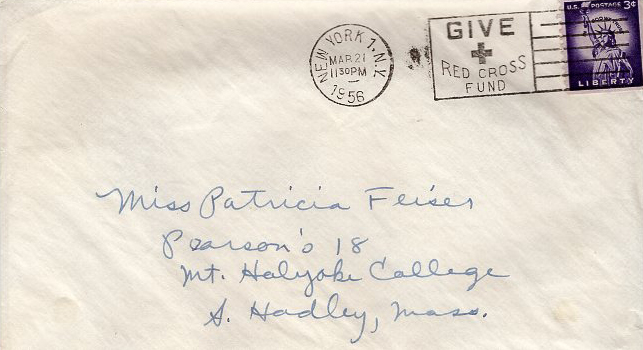 NEW YORK 1, N.Y.
MAR 21
1130PM
1956
GIVE
RED CROSS
FUND
U.S. POSTAGE 3¢
LIBERTY
Miss Patricia Feiser
Pearson's 18
Mt. Holyoke College
S. Hadley, Mass.